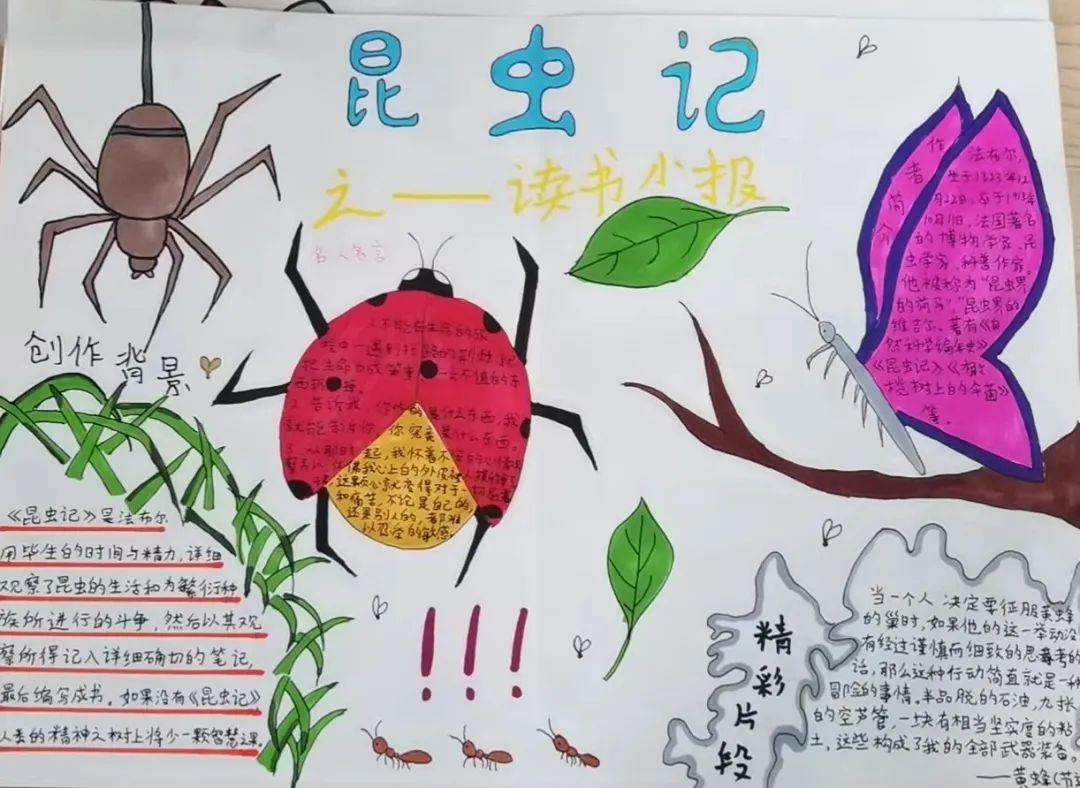 昆虫记
之——读书小报
名人名言
作者简介
法布尔,
生于1823年12
月22日,卒于1915年
10月11日,法国著名
的博物学家、昆
虫学家、科普作家。
他被称为“昆虫界
的荷马”,“昆虫界的
维吉尔。著有《自
然科学编年史》
《昆虫记》《橄
榄树上的伞菌》
等。
创作背景
《昆虫记》是法布尔
用毕生的时间与精力,详细
观察了昆虫的生活和为繁衍种
族所进行的斗争,然后以其观
察所得记入详细确切的笔记,
最后编写成书。如果没有《昆虫记》
人类的精神之树上将少一颗智慧之果。
1.人不能在生命的旅
程中一遇到拦路的荆棘就
把生命当成
一文不值的东
西抛
2.告诉我,你吃的是什么东西,我
就能告诉你,你究竟是什么东西。
3.从那时起,我怀着不安的心情
这颗心就老得对于
和痛苦,不论是自己的,
还是别人的,都难
以忍受的敏感。
!!!
精彩片段
当一个人决定要征服黄蜂
的巢时,如果他的这一举动没
有经过谨慎而细致的思考的
话,那么这种行动简直就是一种
冒险的事情。半品脱的石油,九张
的空芦管,一块有相当坚实度的粘
土,这些构成了我的全部武器装备。
——黄蜂(节